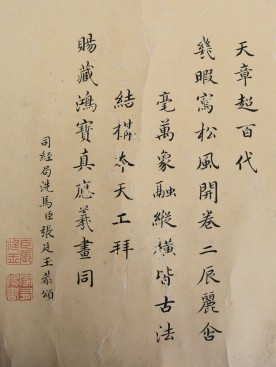 天章超百代
幾暇寫松風開卷二辰麗含
毫萬象融縱橫皆古法
結構本天工拜
賜藏鴻寶真應羲畫同
司經局洗馬臣張廷玉恭頌